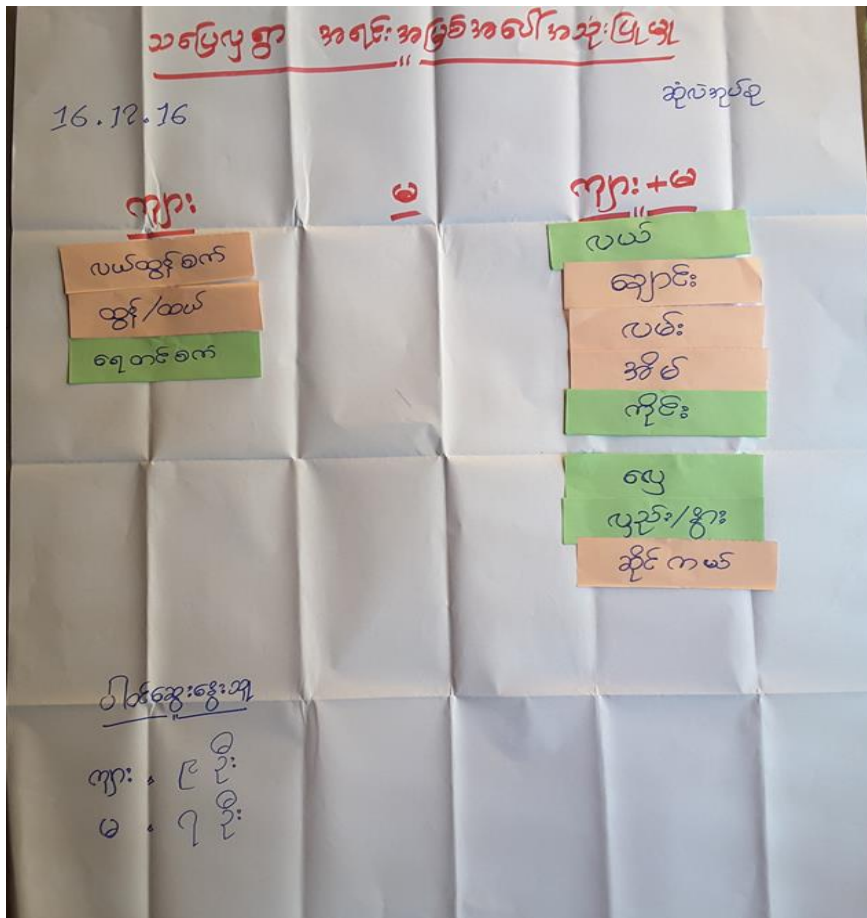 သပြေလှရွာ အရင်းအမြစ်အပေါ်အသုံးပြုမှု
16.12.16
ဆုံလဲအုပ်စု
ကျား မ ကျား+မ
လယ်ထွန်စက်
ထွန်/ထယ်
ရေတင်စက်
လယ်
ချောင်း
လမ်း
အိမ်
ကိုင်း
လှေ
လှည်း/နွား
ဆိုင်ကယ်
ပါဝင်ဆွေးနွေးသူ
ကျား . ၉ ဦး
မ . ၇ ဦး